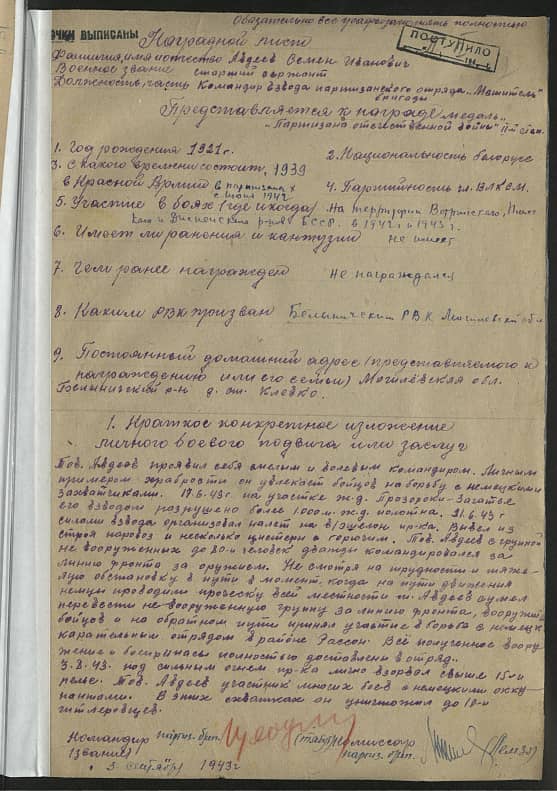 Обязательно все графы заполнять полностью
ОЧКИ ВЫПИСАНЫ
ПОСТУПИЛО
Наградной лист
Фамилия, имя и отчество Авдеев Семен Иванович
Военное звание старший сержант
Должность, часть Командир взвода партизанского отряда „Мститель"
бригады
Представляется к награде медаль
„Партизана отечественной войны" II й степ.
1. Год рождения 1921 г. 2. Национальность белорус
3. С какого времени состоит, 1939
в Красной Армии в партизанах 4. Партийность чл. ВЛКСМ.
с мая 1942
5. Участие в боях (где и когда) На территории Ветринского, Плис
ского и Дисненского р-нов БССР. в 1942 г и 1943 г.
6. Имеет ли ранения и контузии не имеет
7. Чем ранее награжден Не награждался
8. Каким РВК призван Белыничским РВК Могилевской обл
9. Постоянный домашний адрес (представляемого к
награждению или его семьи) Могилёвская обл.
Белыничский р-н д. Клевко.
1. Краткое конкретное изложение
личного боевого подвига или заслуг
Тов. Авдеев проявил себя смелым и волевым командиром. Личным
примером храбрости он увлекает бойцов на борьбу с немецкими
захватчиками. 17.6.43 г. на участке ж.д. Прозороки-Загатье
его взводом разрушено более 100 м. ж.д. полотна. 21.6.43 г
силами взвода организовал налет на в/эшелон пр-ка. Вывел из
строя паровоз и несколько цистерн с горючим. Тов. Авдеев с группой
не вооруженных до 20-и человек дважды командировался за
линию фронта за оружием. Не смотря на трудности и тяже-
лую обстановку в пути в момент, когда на пути движения
немцы проводили прочёску всей местности т. Авдеев сумел
перевести не вооруженную группу за линию фронта, вооружил
бойцов и на обратном пути принял участие в борьбе с немецк
карательным отрядом в районе Россон. Всё полученное воору
жение и боеприпасы полностью доставлены в отряд.
3.8.43. под сильным огнем пр-ка лично взорвал свыше 15-и
рельс. Тов. Авдеев участник многих боев с немецкими окку-
пантами. В этих схватках он уничтожил до 10-и
гитлеровцев.
Командир партиз. бриг. Комиссар
(звание) партиз. бриг.
3 сентября 1943 г